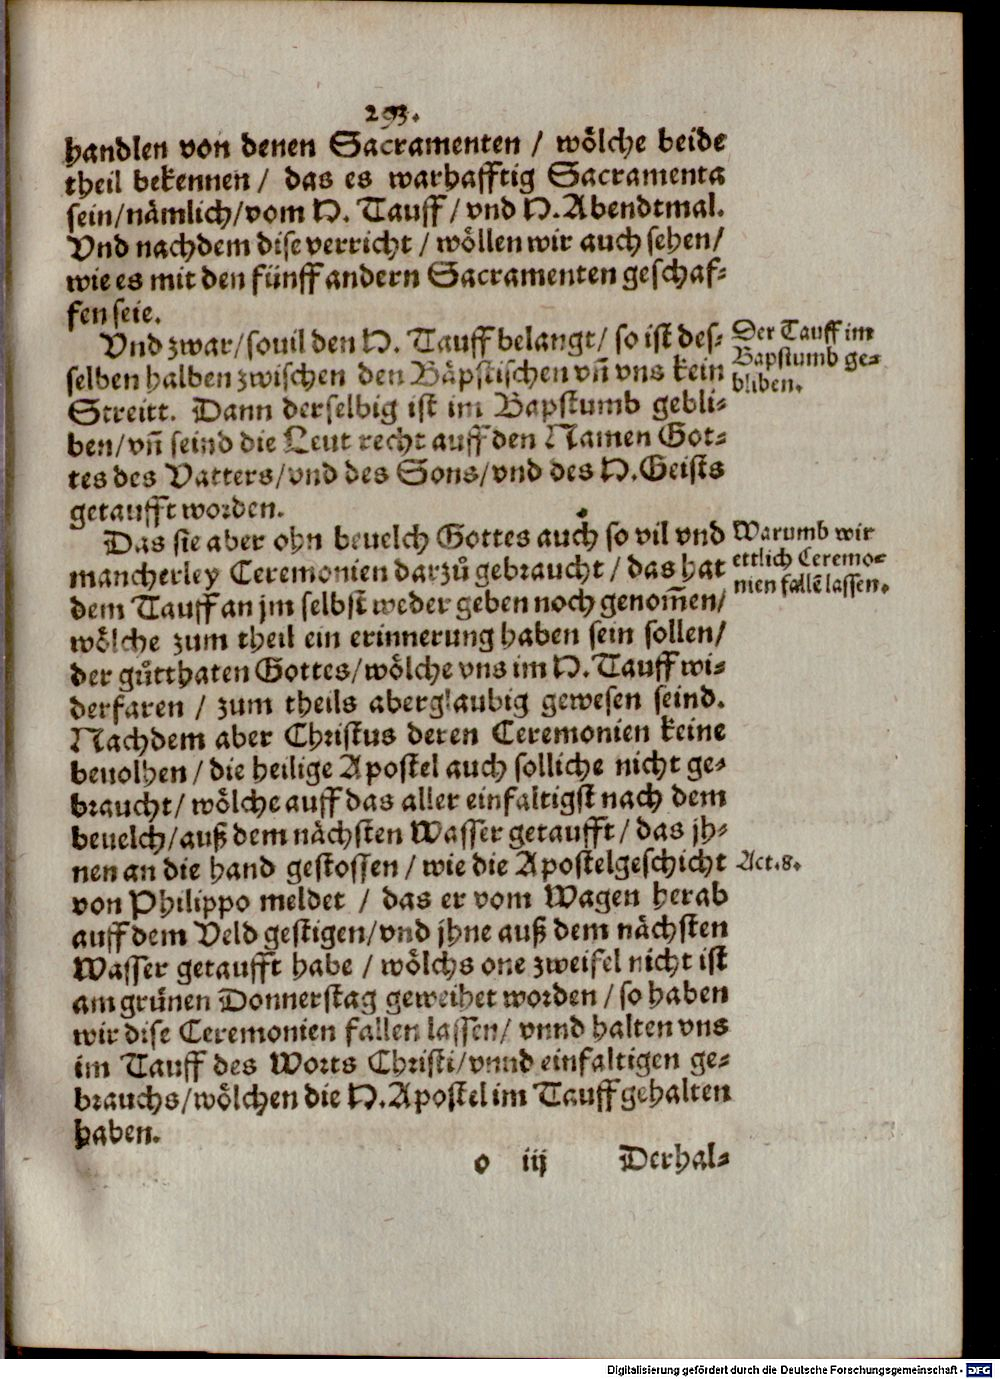 293.
handlen von denen Sacramenten / wölche beide
theil bekennen / das es warhafftig Sacramenta
sein/nämlich/vom H. Tauff / vnd H. Abendtmal.
Vnd nachdem dise verricht / wöllen wir auch sehen/
wie es mit den fünff andern Sacramenten geschaf-
fen seie.
Vnd zwar/souil den H. Tauff belangt/ so ist des-
selben halben zwischen den Bäpstischen vn̄ vns kein
Streitt. Dann derselbig ist im Bapstumb gebli-
ben/vn̄ seind die Leut recht auff den Namen Got-
tes des Vatters/vnd des Sons/vnd des H. Geists
getaufft worden.
Der Tauff im
Bapstumb ge-
bliben.
Das sie aber ohn beuelch Gottes auch so vil vnd
mancherley Ceremonien darzů gebraucht / das hat
dem Tauff an jm selbst weder geben noch genom̄en/
wölche zum theil ein erinnerung haben sein sollen/
der gůtthaten Gottes/wölche vns im H. Tauff wi-
derfaren / zum theils aberglaubig gewesen seind.
Nachdem aber Christus deren Ceremonien keine
beuolhen / die heilige Apostel auch solliche nicht ge-
braucht/ wölche auff das aller einfaltigst nach dem
beuelch/auß dem nächsten Wasser getaufft / das jh-
nen an die hand gestossen / wie die Apostelgeschicht
von Philippo meldet / das er vom Wagen herab
auff dem Veld gestigen/vnd jhne auß dem nächsten
Wasser getaufft habe / wölchs one zweifel nicht ist
am grünen Donnerstag geweihet worden / so haben
wir dise Ceremonien fallen lassen/ vnnd halten vns
im Tauff des Worts Christi/vnnd einfaltigen ge-
brauchs/wölchen die H. Apostel im Tauff gehalten
haben.
Warumb wir
ettlich Ceremo-
nien fallē lassen.
Act.8.
o iij Derhal-
Digitalisierung gefördert durch die Deutsche Forschungsgemeinschaft - DFG